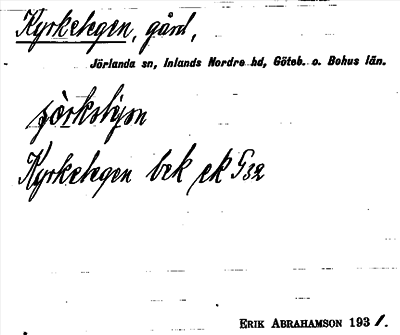 Kyrkelegen, gård,
Jörlanda sn, Inlands Nordre hd, Göteb. o. Bohus län.
Kyrkelegen bek ek G32
ERIK ABRAHAMSON 1931.